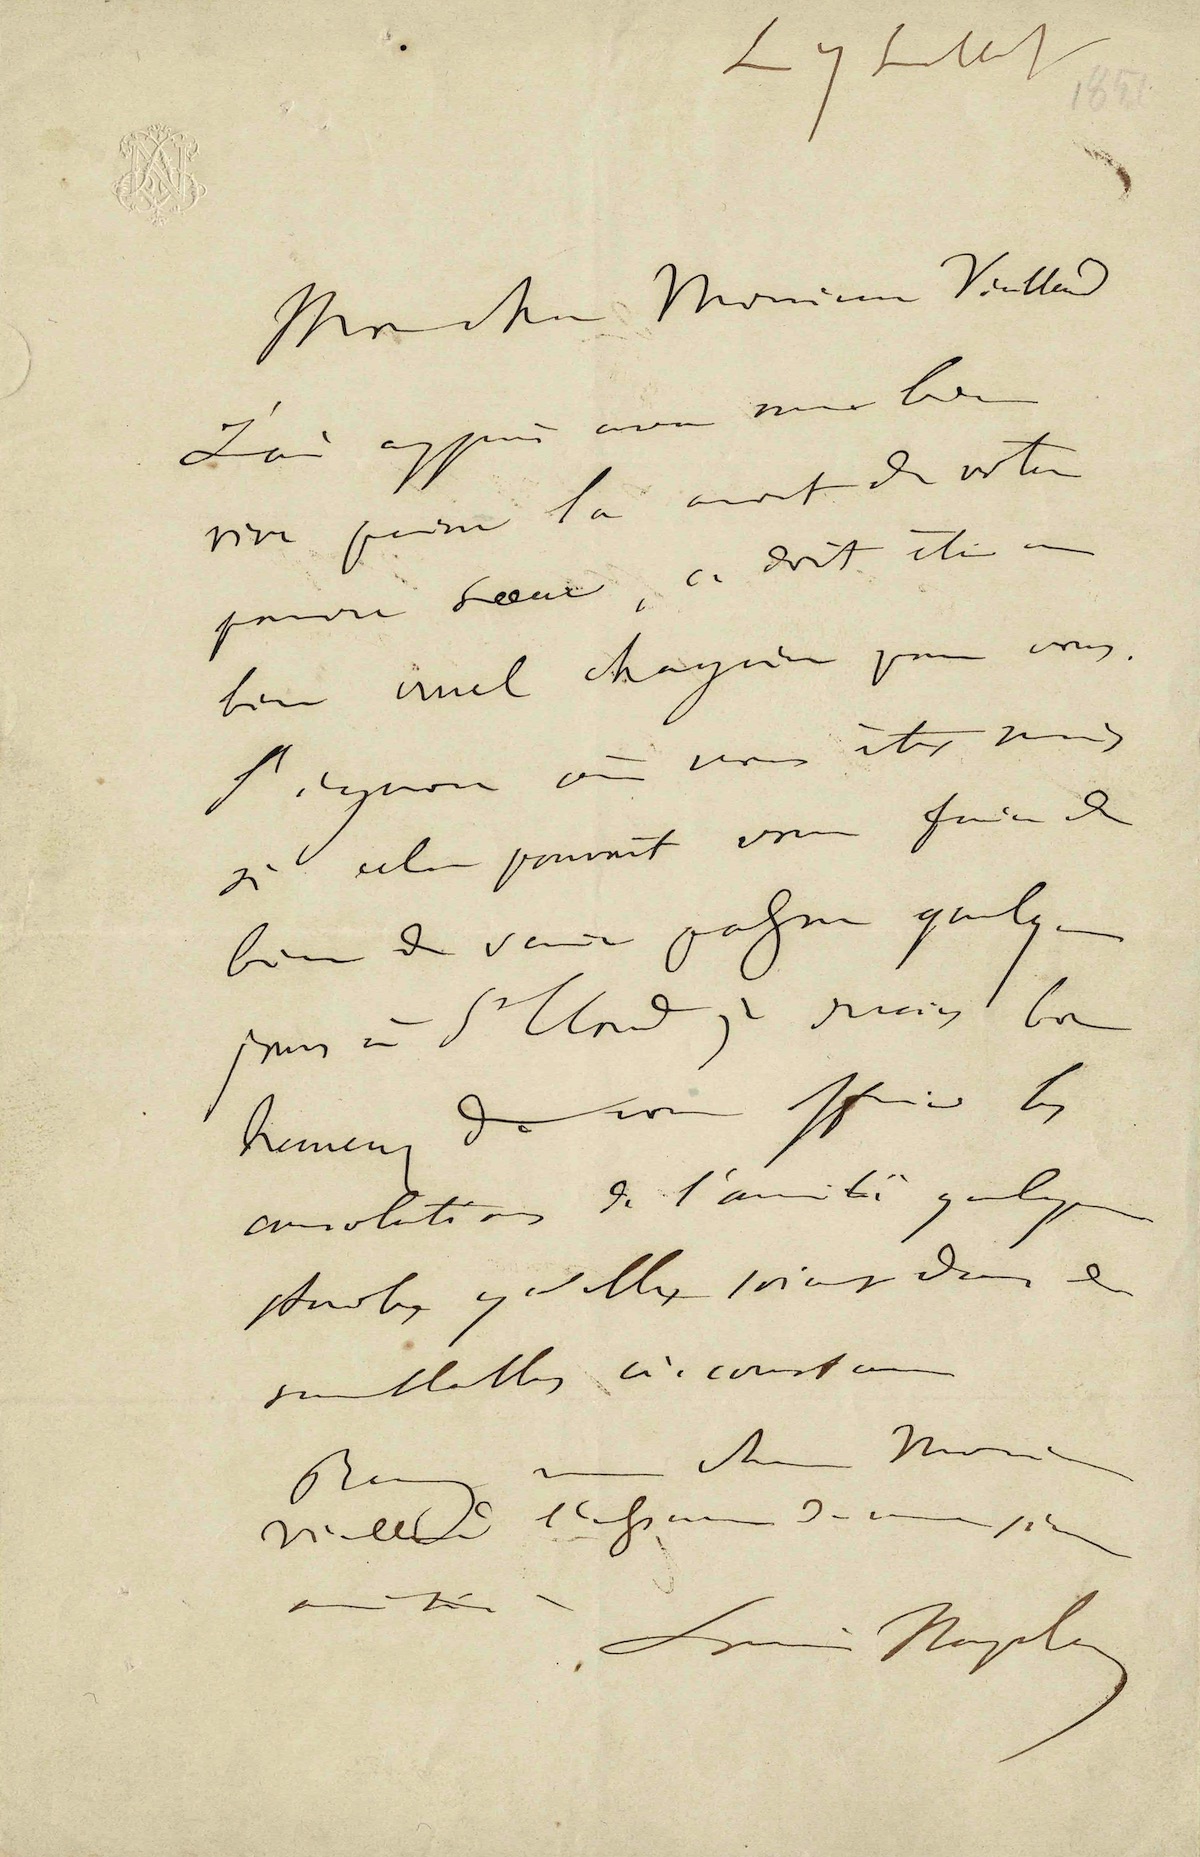 Le 9 Juillet
1851
Mon cher Monsieur Vieillard
J'ai appris avec une bien
vive peine la mort de votre
pauvre sœur, ce doit être un
bien cruel chagrin pour vous.
J'ignore où vous êtes mais
si cela pouvait vous faire du
bien de venir passer quelques
jours à St Cloud je serais bien
heureux de vous offrir les
consolations de l'amitié quelques
stériles qu'elles soient dans de
semblables circonstances
Recevez mon cher Monsieur
Vieillard l'assurance de ma
amitié
Louis Napoléon